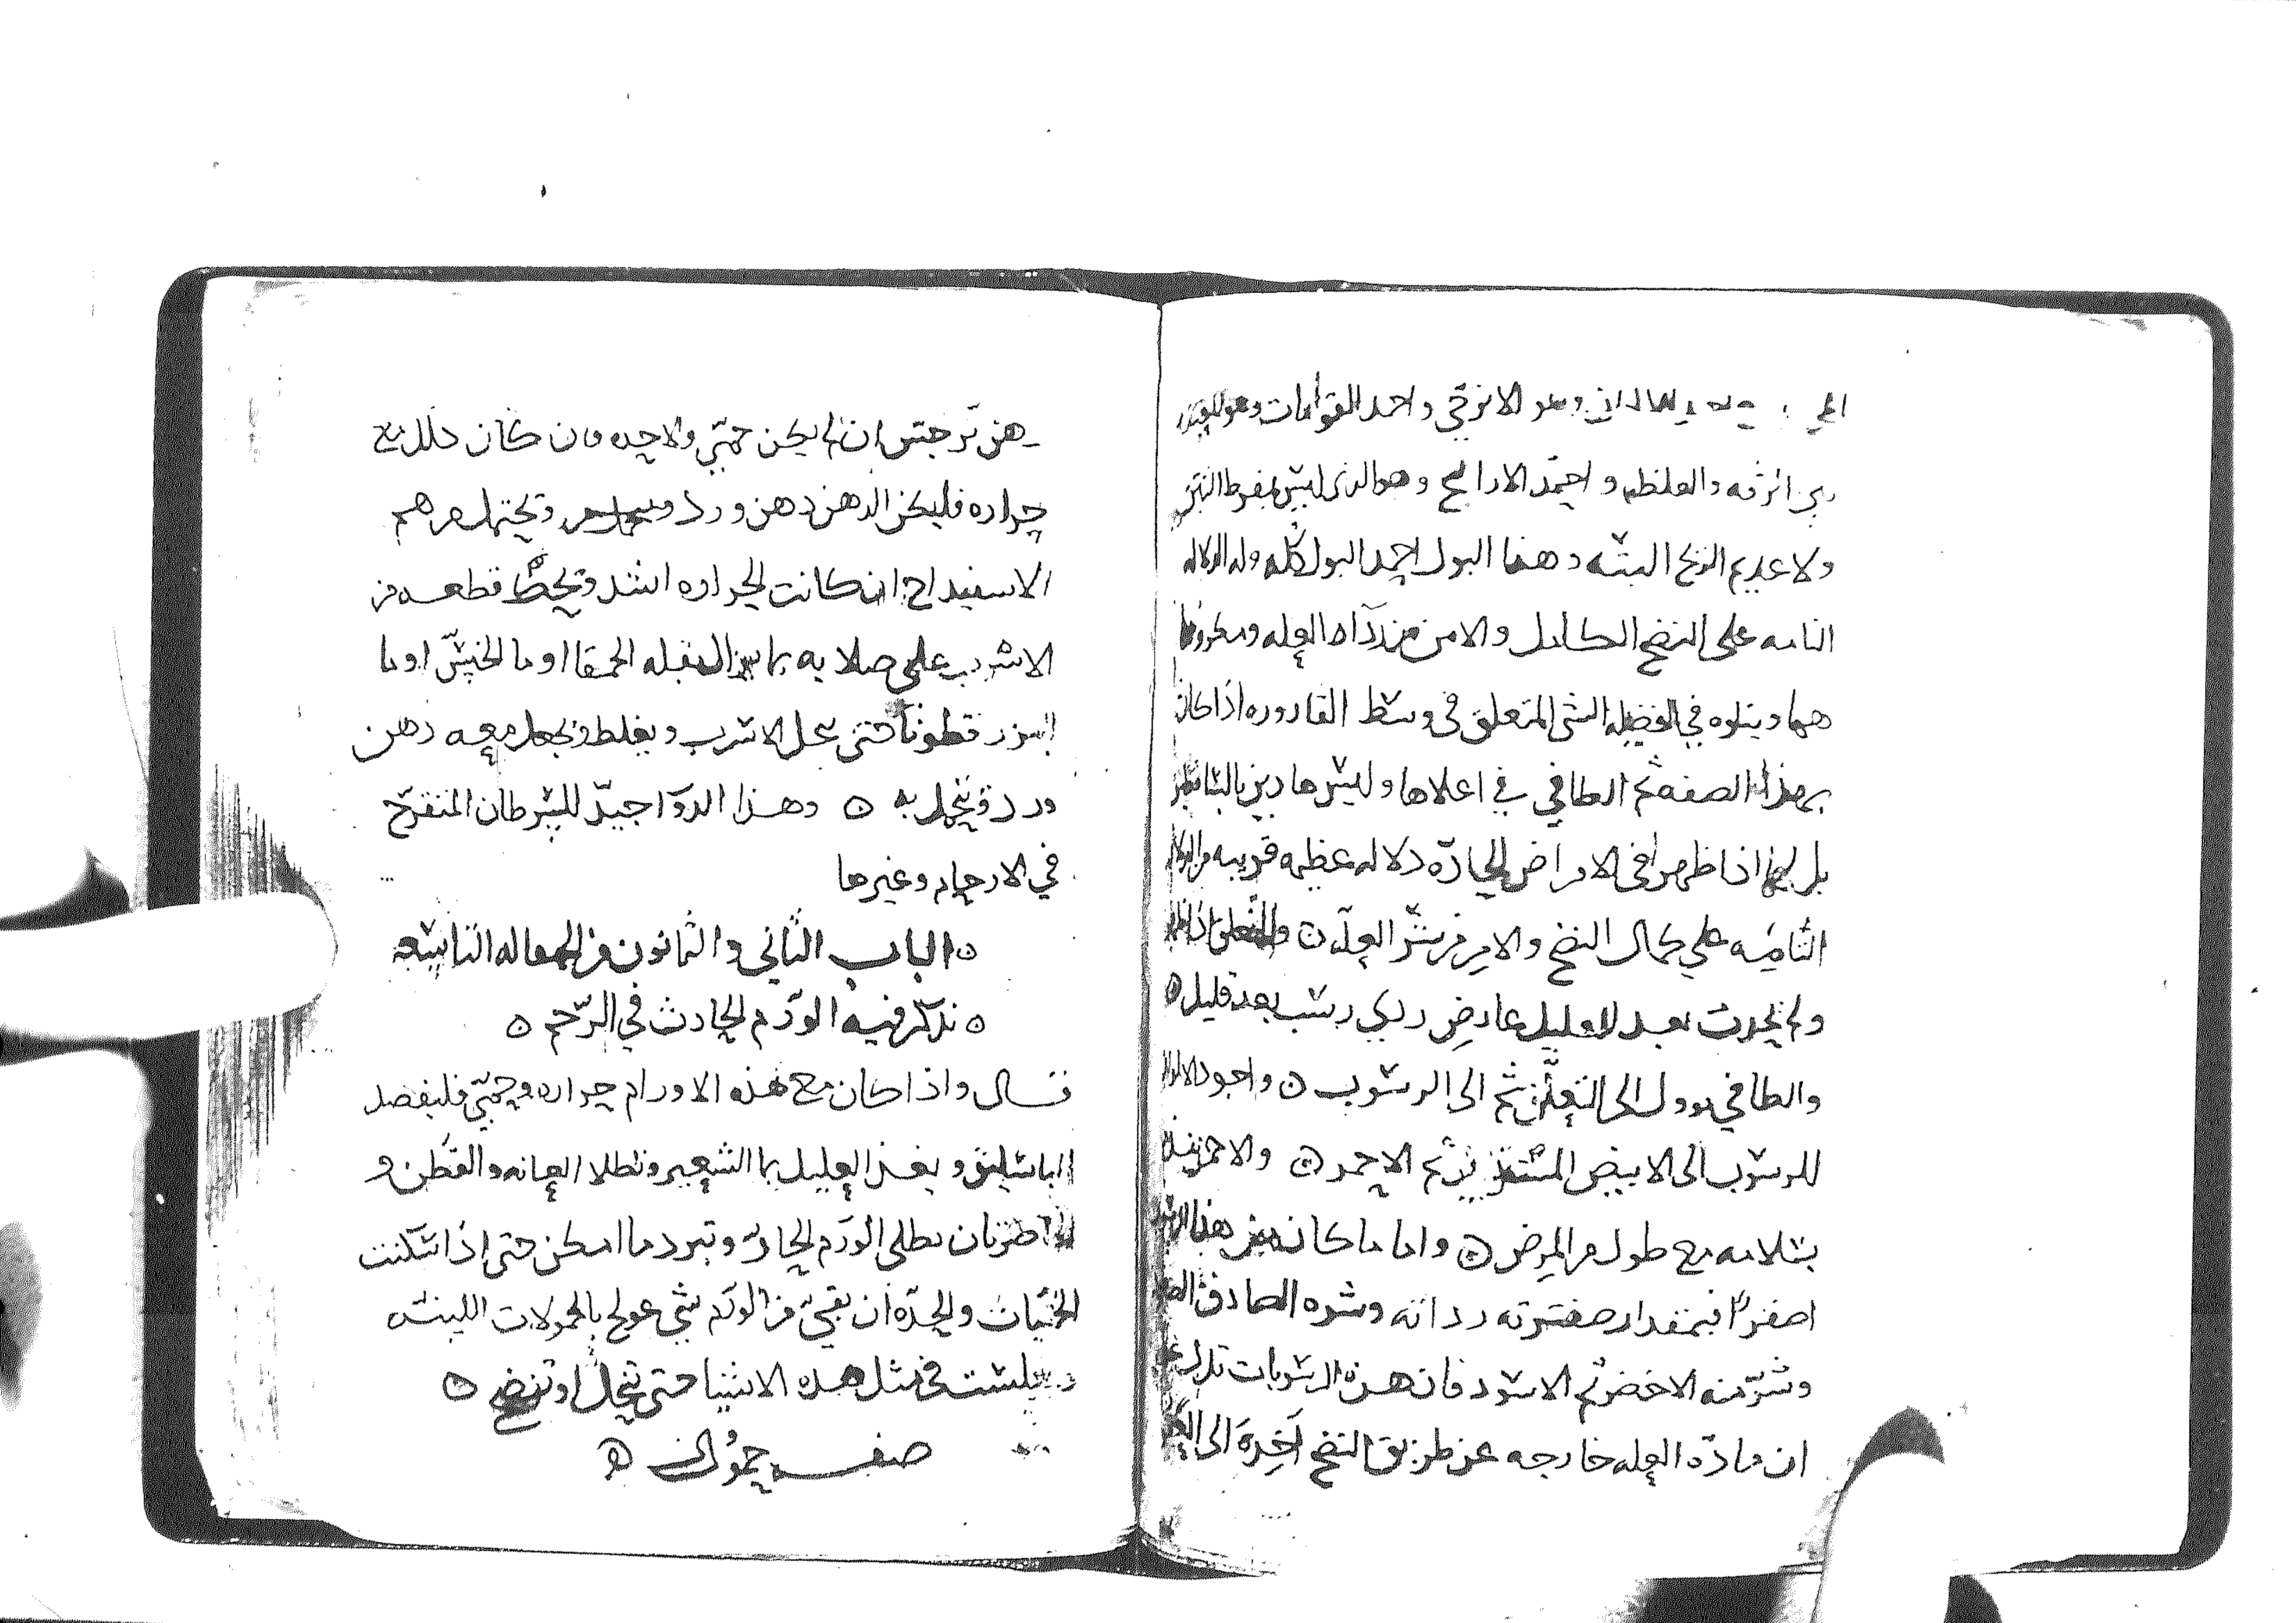 وهو الاترجي واحمد القوامات وهو
الرقه والغلظه واحمد الارايح وهو الذى ليس بمفرط النتن
ولا عديم الريح البته وهذا البول احمد البول كله وله الدلاله
التامه على النضج الكامل والامن من رداه العله ومكروهها
هما ويتلوه في الفضيله الشى المتعلق فى وسط القاروره اذا كان
بهذه الصفه ثم الطافي في اعلاها وليس هاذين
بل لهما اذا ظهرا فى الامراض الحادّه دلاله عظيمه قريبه من الدلاله
التامّه علي كمال النضج والامن من شر العله ن والمتعلق اذا
ولم يحدث بعد للعليل عارض ردي رسب بعد قليل ن
والطافي يوول الى التعلّق ثم الى الرسوب ن واجود الالوان
للرسوب الى الابيض ثم الاحمر ن والاحمر
بسلامه مع طول من المرض ن واما ما كان من هذا
اصفرًا فبمقدار صفرته رداته وشره الصادق
وشرّ منه الاخضر ثم الاسود فان هذه الرسوبات تدل على
ان مادّه العله خارجه عن طريق النضج آخِذه الى
دهن نرجس ان لم يكن حمّي ولا حده فان كان ذلك مع
حراره فليكن الدهن دهن ورد وتحتمل مرهم
الاسفيداج ان كانت الحراره اشد وتحكّ قطعه من
الاسرب على صلايه بما البقله الحمقا او ما الخسّ او ما
البزر قطونا حتى يحل الاسرب ويغلظ ويجعل معه دهن
ورد ويتحمل به ن وهذا الدوا جيّد للسرطان المتقرّح
في الارحام وغيرها
ن الباب الثاني والثمانون من المقاله التاسعه
ن نذكر فيه الورم الحادث في الرّحم ن
قال واذا كان مع هذه الاورام حراره وحمّي فليفصد
الباسليق ويغذا العليل بما الشعير وتطلا العانه والقطن و
بان يطلى الورم الحارّ وتبرد ما امكن حتى اذا سكنت
الحمّيات والحدّه ان بقيّ من الورم شي عولج بالحمولات اللينه
ويجلست فى مثل هذه الاشيا حتى يتحلل او تنضج ن
صفه حمُول ن